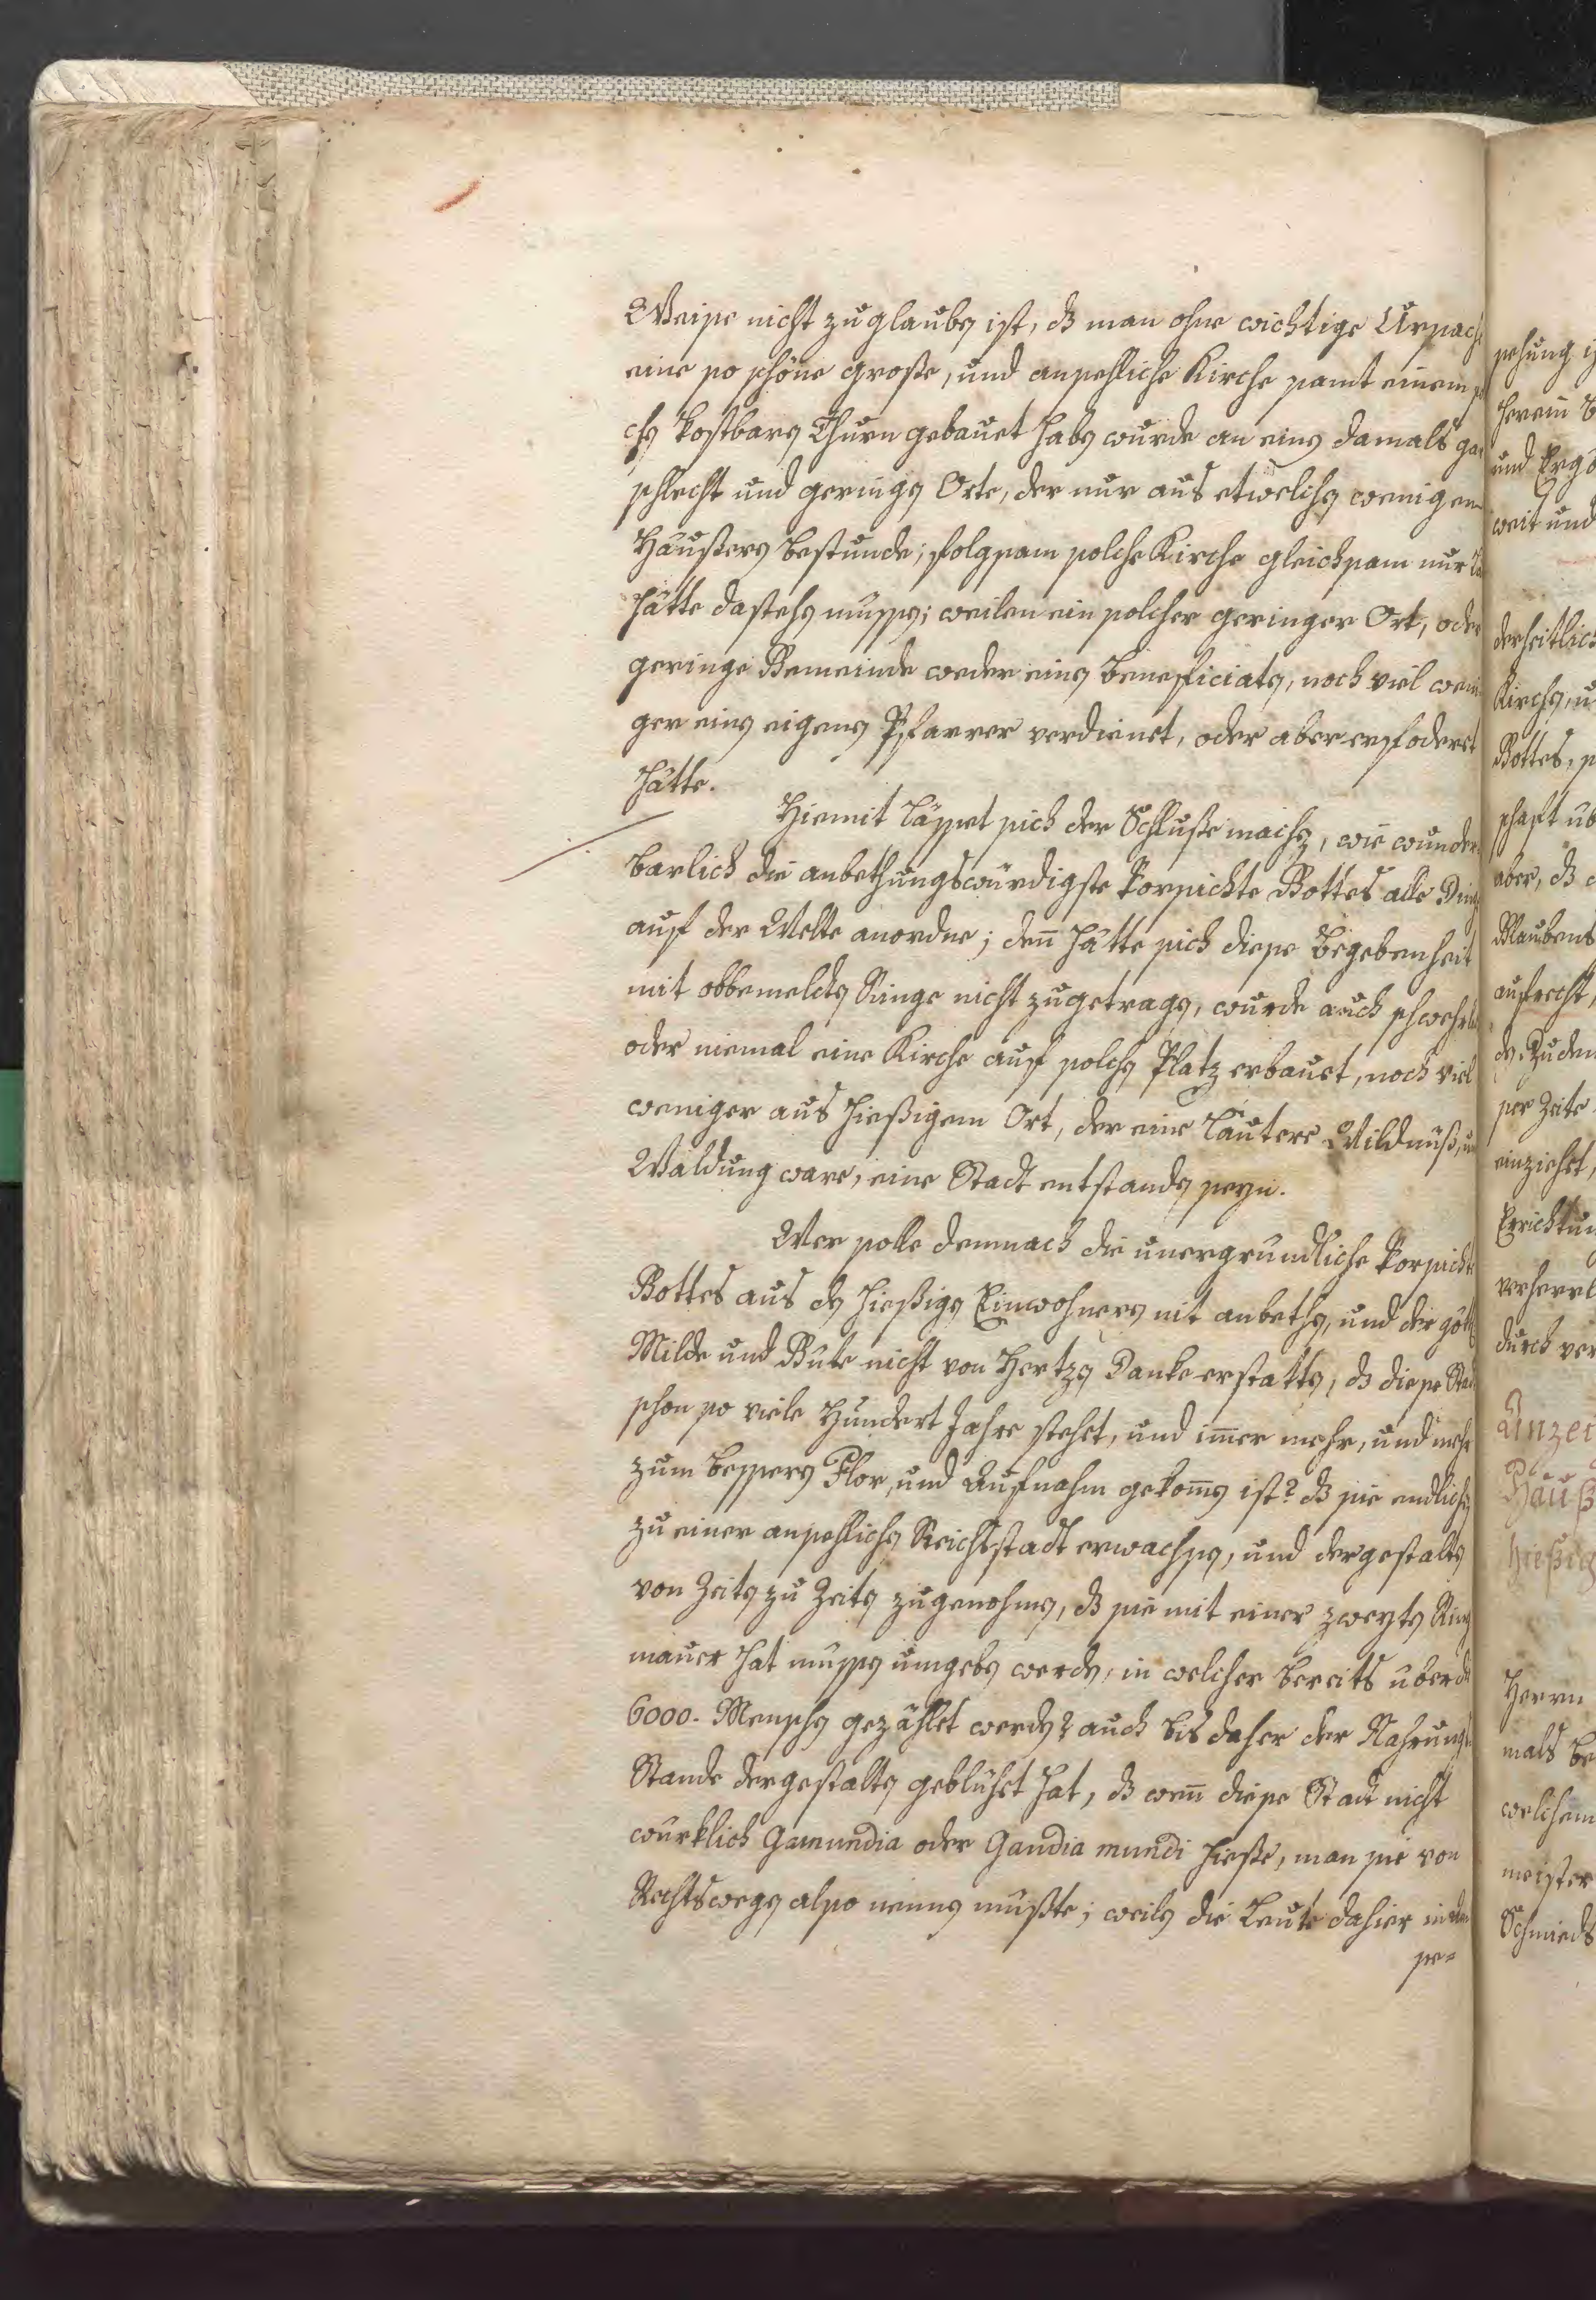 Weise nicht zu glauben ist, dß man ohne wichtige Ursach
eine so schöne große, und ansehliche Kirche samt einem sol
chen kostbaren Thurn gebauet haben wurde an einen damals gar
schlecht und geringen Orte, der nur aus etwelchen wenigen
Häußeren bestunde; folgsam solche Kirche gleichsam nur
hätte dastehen müssen; weilen ein solcher geringer Ort, oder
geringe Gemeinde weder einen beneficiaten, noch viel weni
ger einen eigenen Pfarrer verdienet, oder aber erfoderet
hätte.
Hiemit lässet sich der Schluße machen, wie wunder
barlich die anbethungswürdigste Vorsichte Gottes alle Dinge
auf der Welte anordne; deñ hätte sich diese Begebenheit
mit obbemeldten Ringe nicht zugetragen, wurde auch schwehrlich
oder niemal eine Kirche auf solchen Platz erbauet, noch viel
weniger aus hießigem Ort, der eine läutere Wildnüß, und
Waldung ware, eine Stadt entstanden seyn.
Wer solle demnach die unergrundliche Vorsichte
Gottes aus den hießigen Einwohneren nit anbethen, und der göttl
Milde und Güte nicht von Hertzen Danke erstatten, dß diese Stadt
schon so viele Hundert Jahre stehet, und im̃er mehr, und mehr
zum besseren Flor, und Aufnahm gekom̃en ist? dß sie endlichen
zu einer ansehlichen Reichsstadt erwachsen, und dergestalten
von Zeiten zu Zeiten zugenohmen, dß sie mit einer zweyten Ring
mauer hat müssen umgeben werden, in welcher bereits uber die
6000. Menschen gezählet werden? auch bis daher der Nahrungs
Stande dergestalten geblühet hat, dß weñ diese Stadt nicht
würklich Gamundia oder Gaudia mundi hieße, man sie von
Rechtswegen also nennen müßte; weilen die Leute dahier in dem
se-